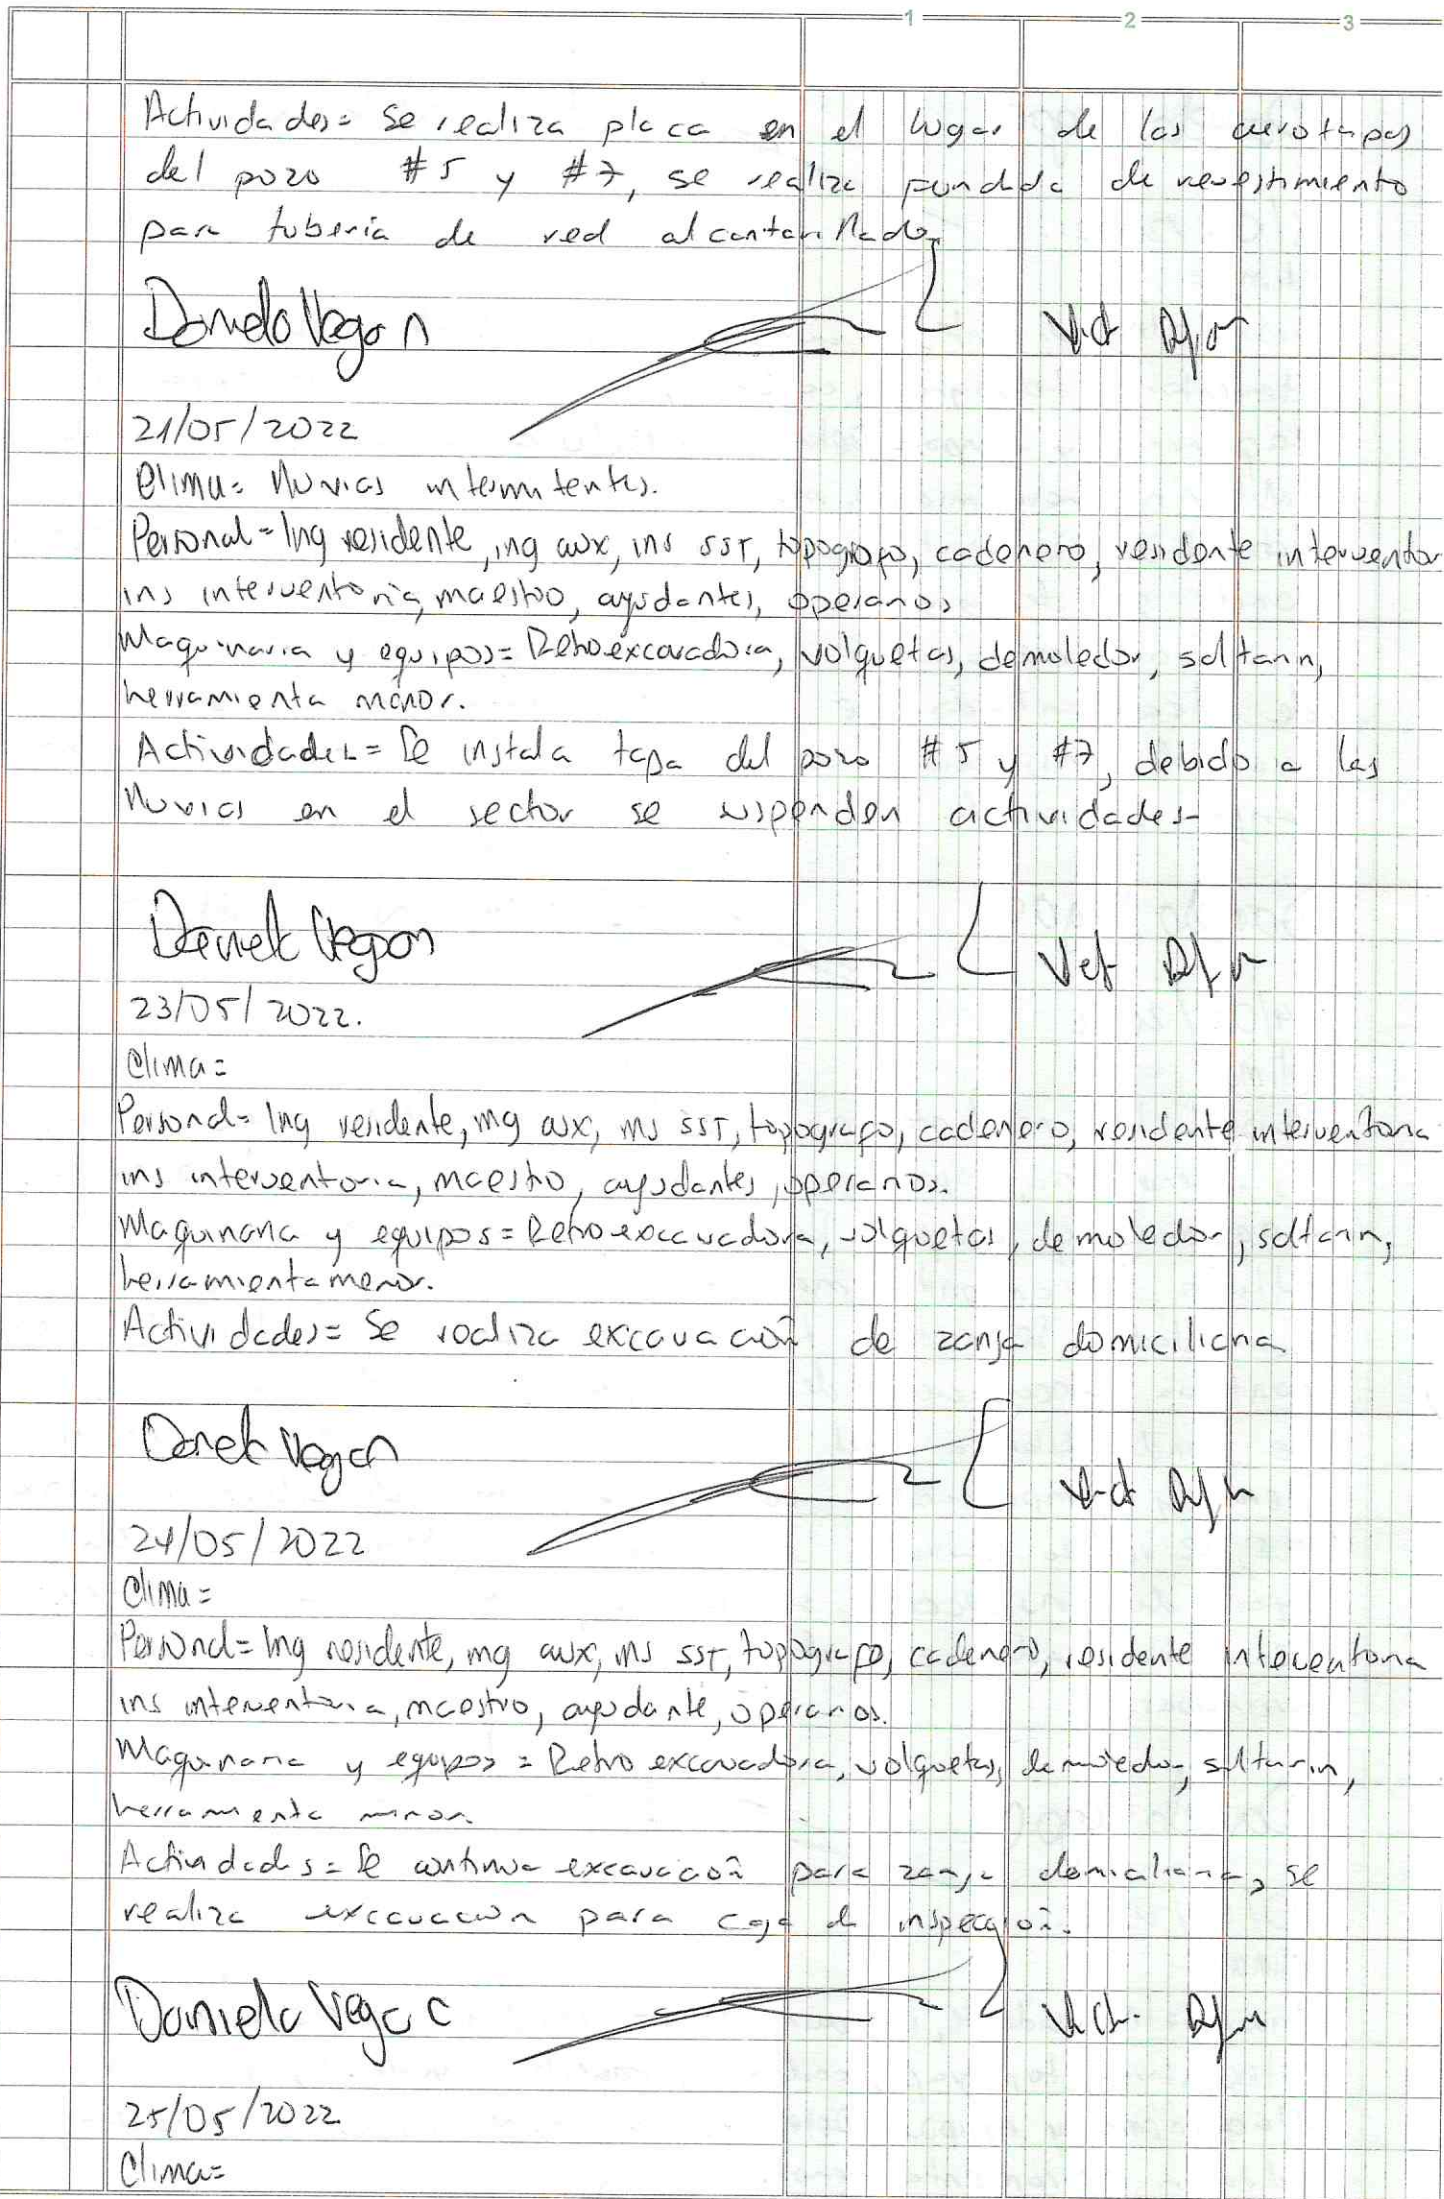 1 2 3
Actividades= Se realiza placa en el lugar de las aerotapas
del pozo #5 y #7, se realiza fundida de revestimiento
para tuberia de red alcantarillado
Daniela Vega
21/05/2022
Clima= lluvias intermitentes.
Personal= Ing residente, ing aux, ins SST, topografo, cadenero, residente interventor
ins interventoria, maestro, ayudantes, operarios
Maquinaria y equipos= Retroexcavadora, volquetas, demoledor, saltarin,
herramienta menor.
Actividades= Se instala tapa del pozo #5 y #7, debido a las
lluvias en el sector se suspenden actividades-
Daniela Vega
23/05/2022.
Clima=
Personal= Ing residente, ing aux, ins SST, topografo, cadenero, residente interventoria
ins interventoria, maestro, ayudantes, operarios.
Maquinaria y equipos= Retroexcavadora, volquetas, demoledor, saltarin,
herramienta menor.
Actividades= Se realiza excavación de zanja domiciliaria
Daniela Vega
24/05/2022
Clima=
Personal= Ing residente, ing aux, ins SST, topografo, cadenero, residente interventoria
ins interventoria, maestro, ayudante, operarios.
Maquinaria y equipos= Retroexcavadora, volquetas, demoledor, saltarin,
herramienta menor.
Actividades= Se continua excavación para zanja domiciliaria, se
realiza excavacion para caja de inspección.
Daniela Vega C
25/05/2022
Clima=